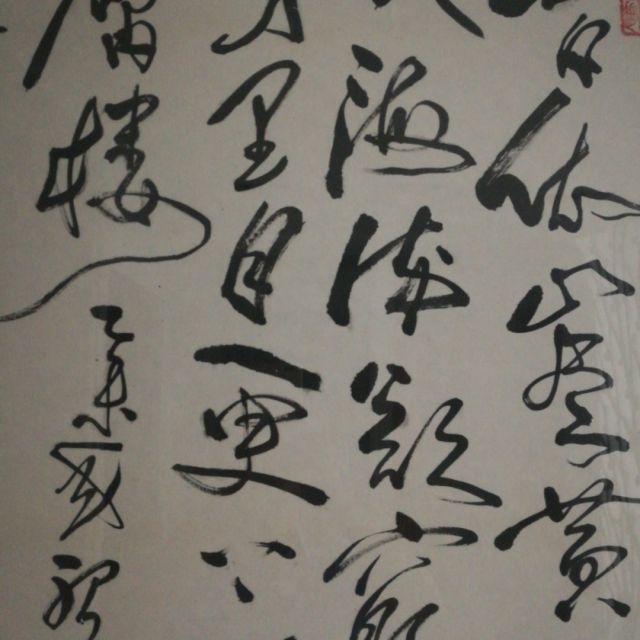 日依山尽黄
海流欲穷
千里目更上
层楼